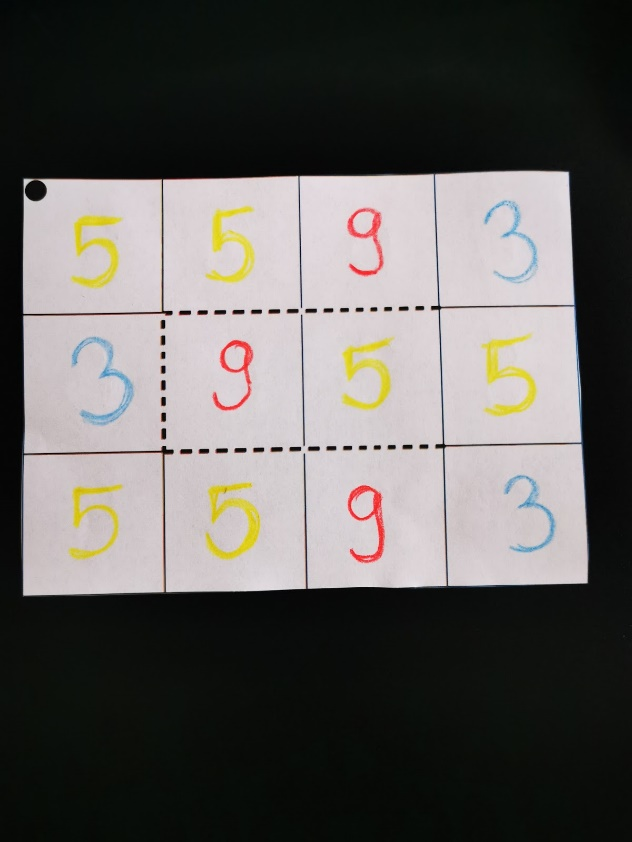 5 5 9 3
3 9 5 5
5 5 9 3